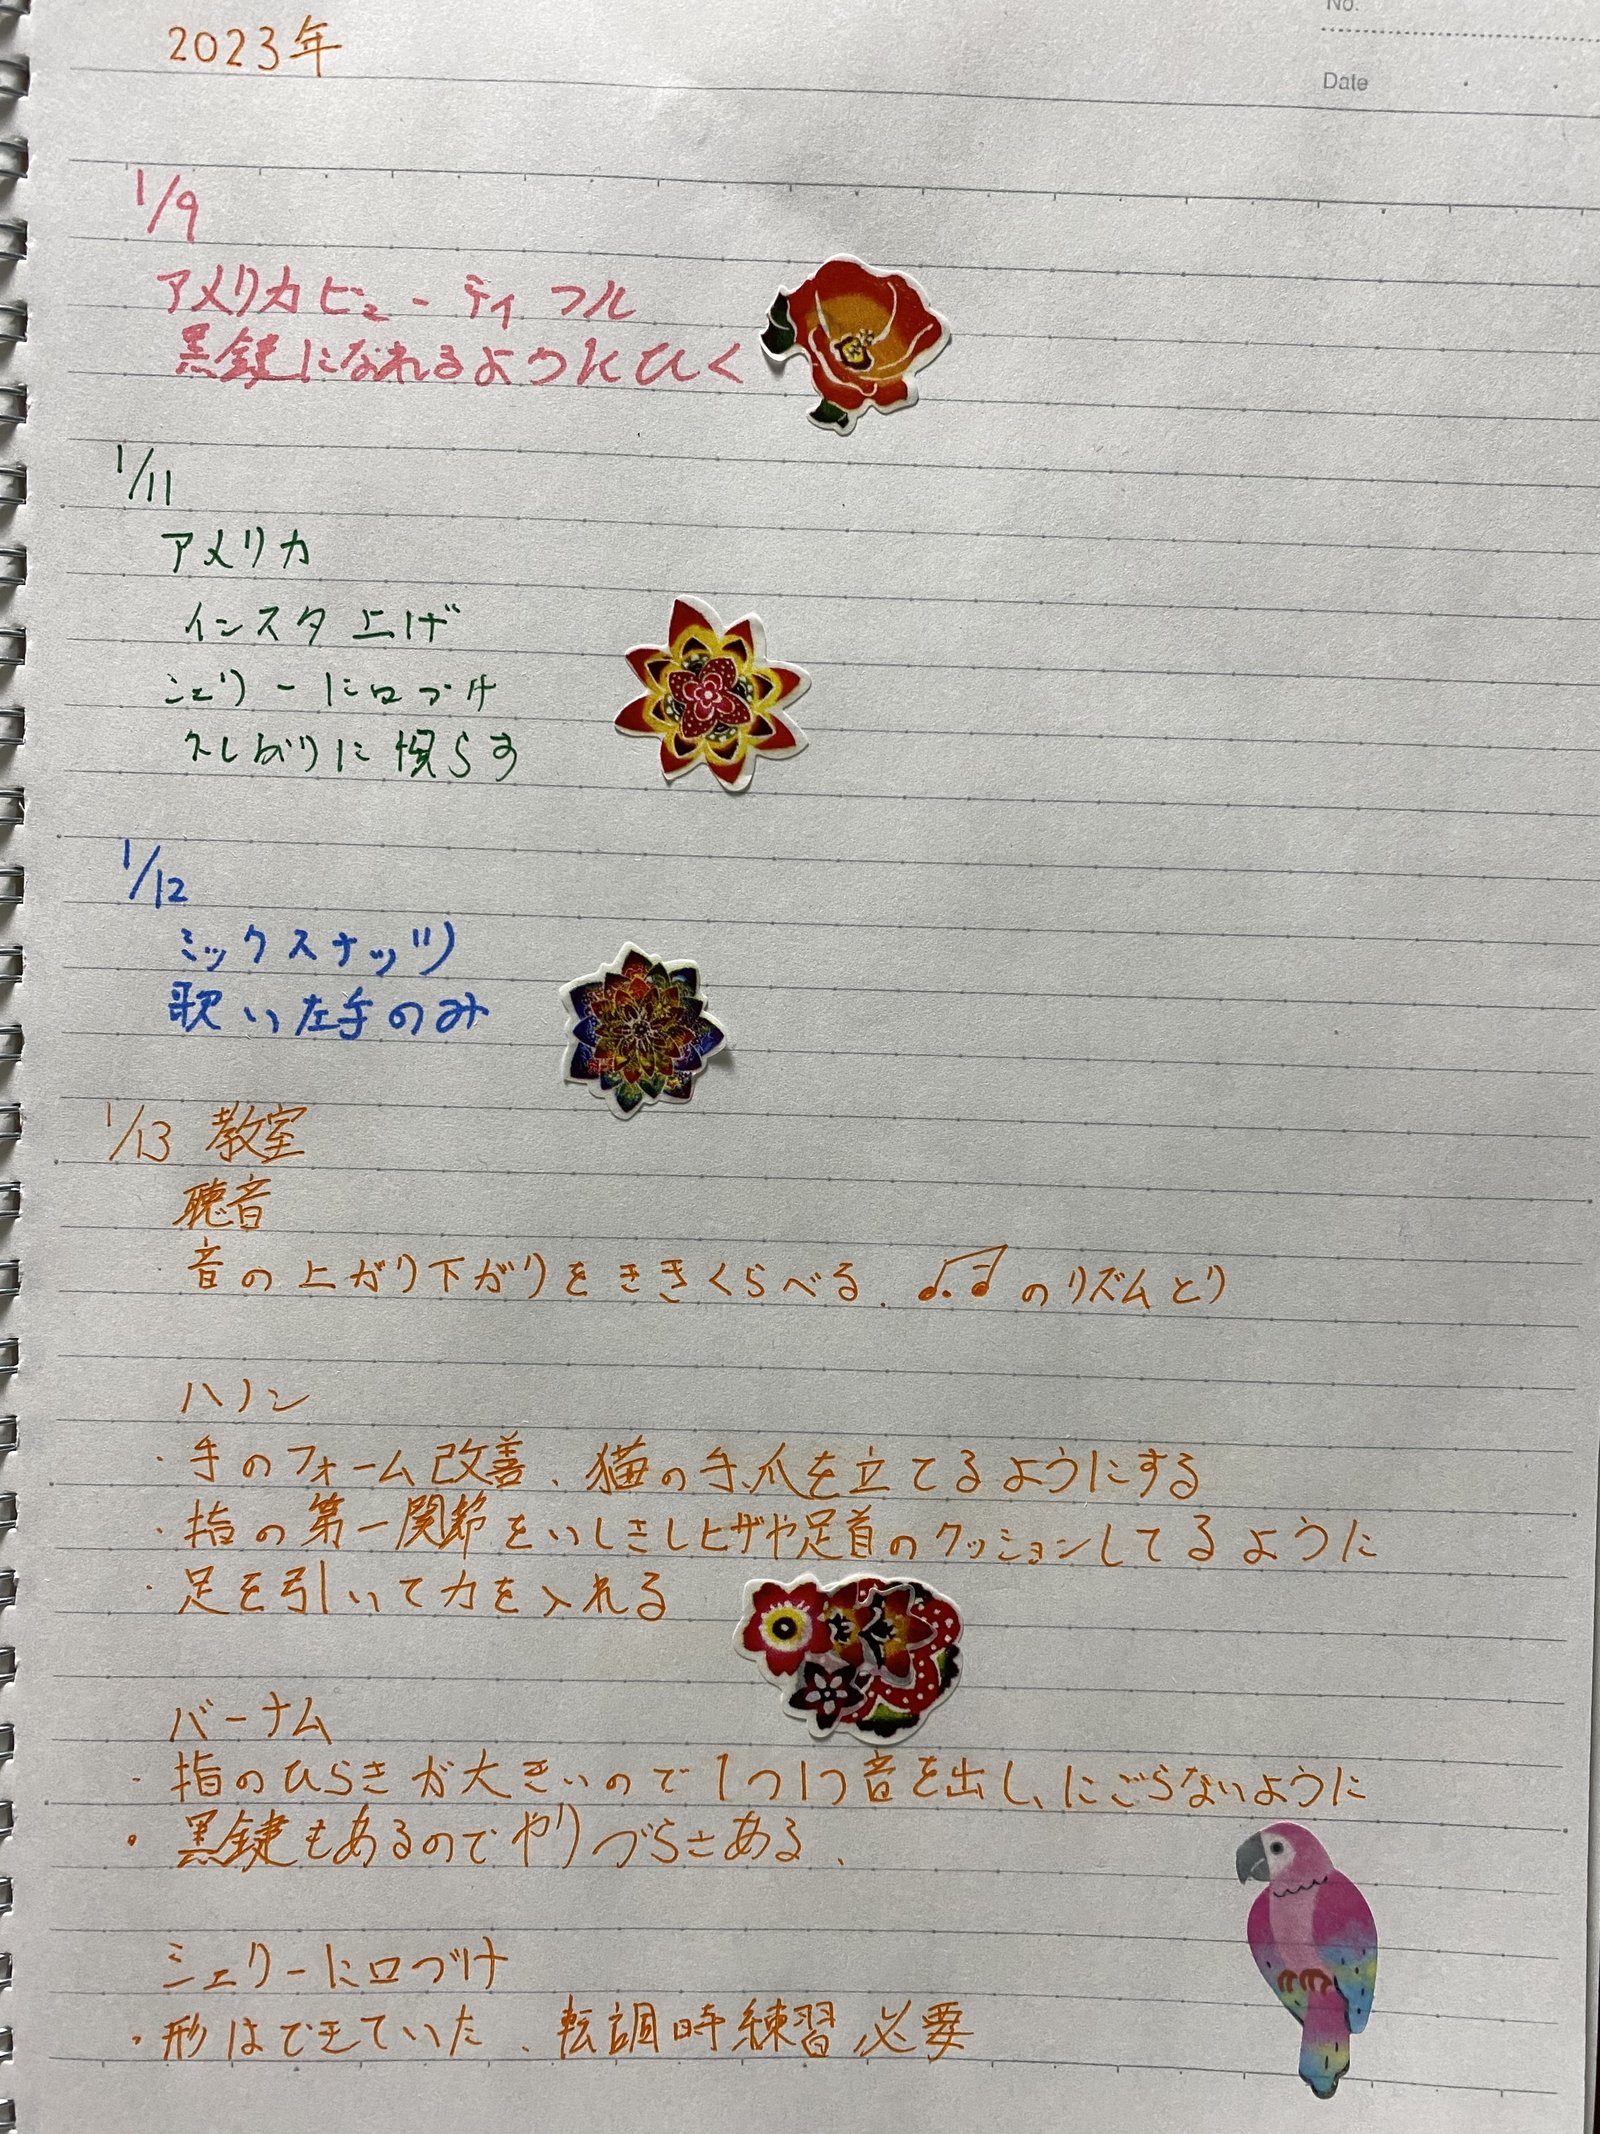 No.
Date
2023年
1/9
アメリカビューティフル
黒鍵になれるようにひく
1/11
アメリカ
インスタ上げ
シェリーに口づけ
久しぶりに慣らす
1/12
ミックスナッツ
歌い左手のみ
1/13 教室
聴音
音の上がり下がりをききくらべる、♫のリズムとり
ハノン
・手のフォーム改善、猫の手、爪を立てるようにする
・指の第一関節をいしきしヒザや足首のクッションしてるように
・足を引いて力を入れる
バーナム
・指のひらきが大きいので1つ1つ音を出し、にごらないように
・黒鍵もあるのでやりづらさある、
シェリーに口づけ
・形はできていた、転調時練習必要